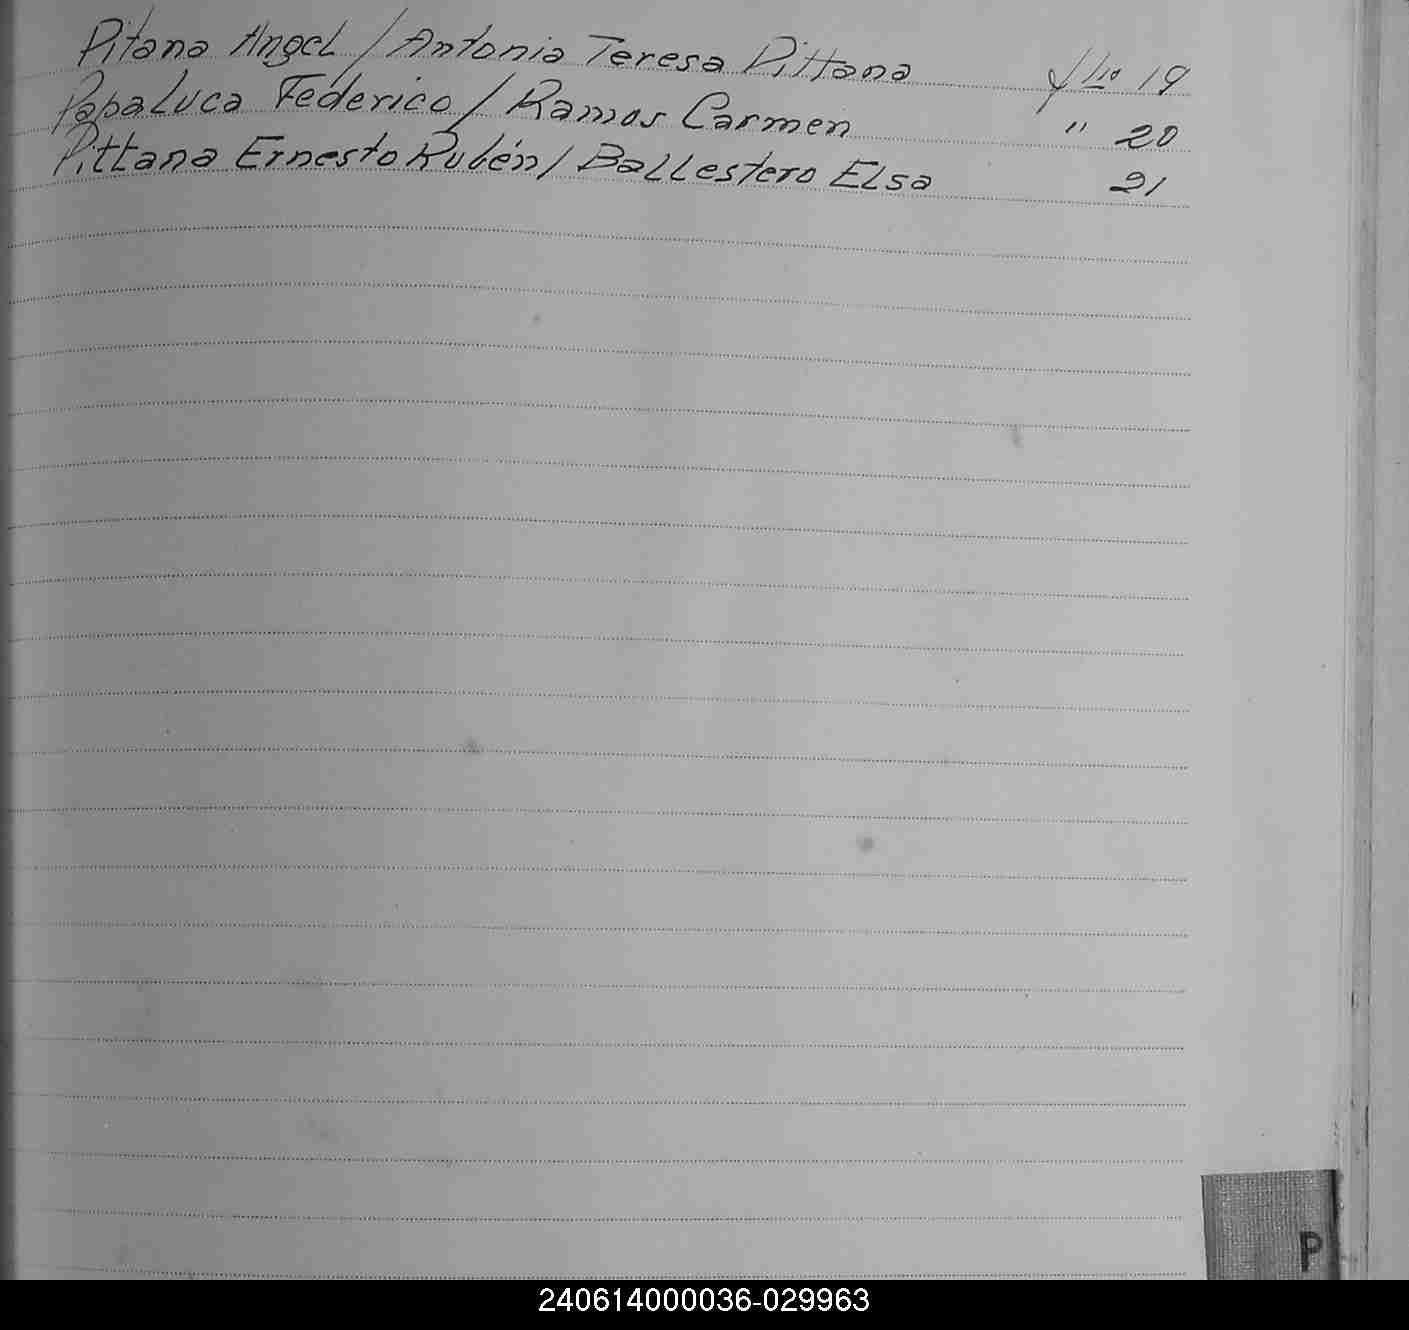 Pitana Angel / Antonia Teresa Pittana flio 19
Papaluca Federico / Ramos Carmen " 20
Pittana Ernesto Rubén / Ballestero Elsa 21
P
240614000036-029963